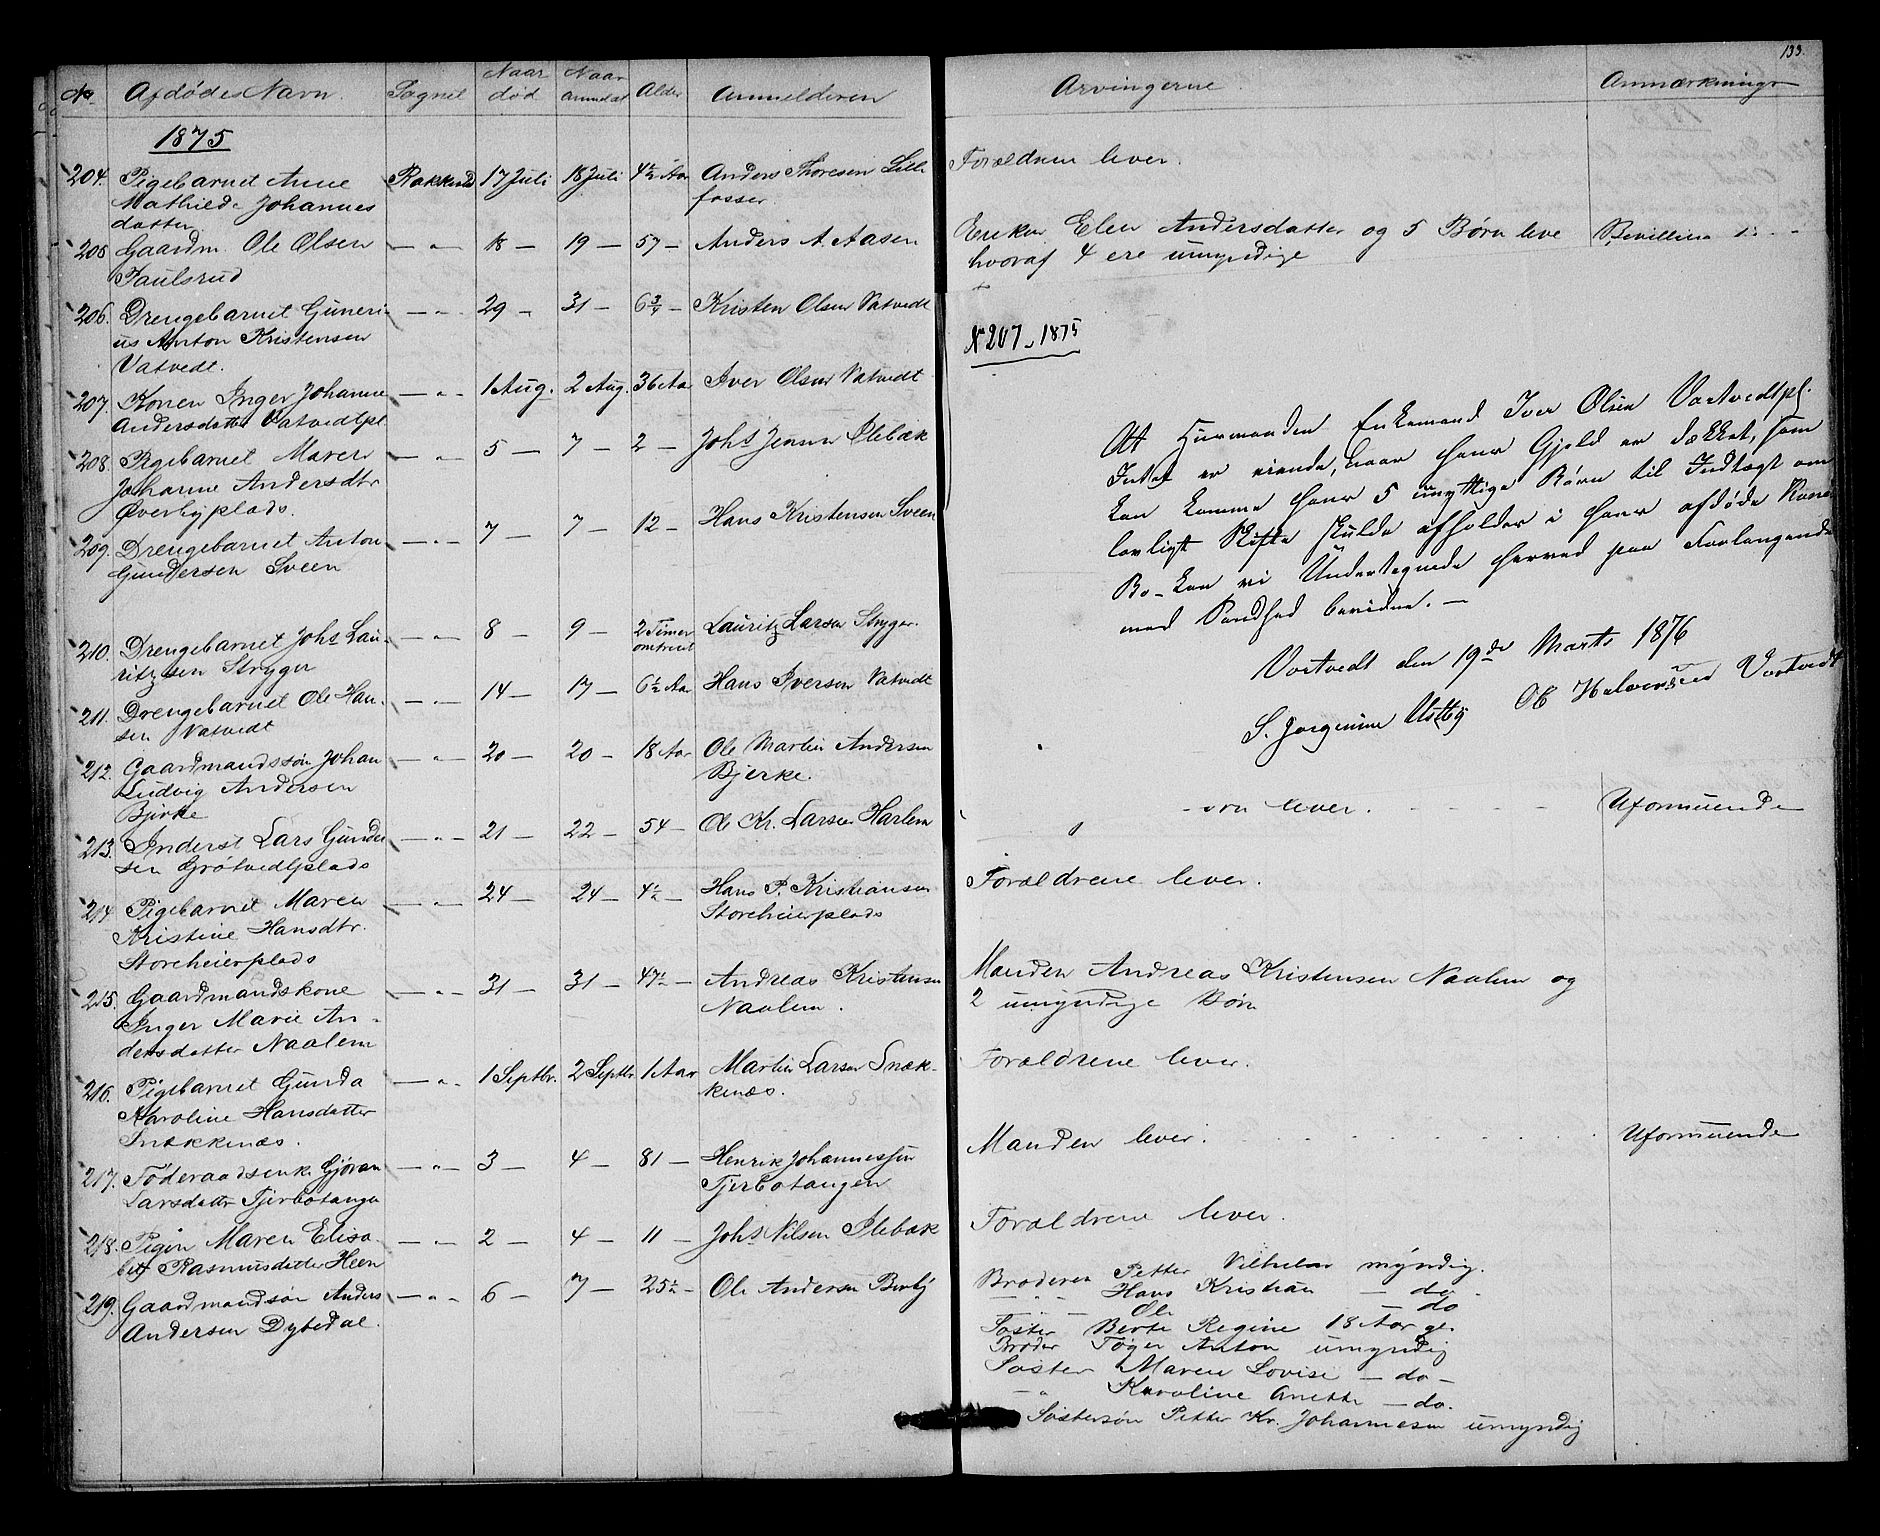 133.
No Afdødes Navn. Sognet Naar død Naar anmeldt Alder Anmelderen
1875
204. Pigebarnet Anne Rakkestad 17 Juli 18 Juli 4½ Aar Anders Thoresen Lille
Mathilde Johannes fosser
datter
205 Gaardm. Ole Olsen — " — 18 — 19 — 57 — Anders A. Aasen
Paulsrud
206. Drengebarnet Guneri- — " — 29 — 31 — 6¾ — Kristen Olsen Vatvedt
us Anton Kristensen
Vatvedt.
207. Konen Inger Johanne — " — 1 Aug. 2 Aug. 36 Aar Iver Olsen Vatvedt
Andersdatter Vatvedtpl
208. Pigebarnet Maren — " — 5 — 7 — 2 — Johs Jensen Slebæk
Johanne Andersdtr
Øverbyplads.
209. Drengebarnet Anton — " — 7 — 7 — 12 — Hans Kristensen Sveen
Gundersen Sveen
210. Drengebarnet Johs Lau- — " — 8 — 9 — 2 Timer Lauritz Larsen Stryger.
ritzsen Stryger omtrent
211. Drengebarnet Ole Han- — " — 14 — 17 — 6½ Aar Hans Iversen Vatvedt
sen Vatvedt
212. Gaardmandssøn Johan — " — 20 — 20 — 18 Aar Ole Martin Andersen
Ludvig Andersen Bjerke.
Bjerke
213. Inderst Lars Gunder — " — 21 — 22 — 54 — Ole Kr. Larsen Harlem
sen Grøtvedtplads
214 Pigebarnet Maren — " — 24 — 24 — 4½ — Hans P. Kristiansen
Kristine Hansdtr. Storeheierplads
Storeheierplads
215. Gaardmandskone — " — 31 — 31 — 47½ — Andreas Kristensen
Inger Marie An- Naalem.
dersdatter Naalem
216. Pigebarnet Gunda — " — 1 Septbr. 2 Septbr. 1 Aar Martin Larsen Snæk-
Karoline Hansdatter kenæs.
Snækkenæs.
217. Føderaadsenke Gjøran — " — 3 — 4 — 81 — Henrik Johannessen
Larsdatter Tjerbotangen Tjerbotangen
218. Pigen Maren Elisa- — " — 2 — 4 — 11 — Johs Nilsen Slebæk
bet Rasmusdatter Heen
219. Gaardmandsøn Anders — " — 6 — 7 — 25½ — Ole Andersen Berby
Andersen Dybedal.
Arvingerne Anmærkninger
Forældrene lever.
Enken Elen Andersdatter og 5 Børn leve Bevilling
hvoraf 4 ere umyndige
N 207 - 1875
At Huusmanden Enkemand Iver Olsen Vastvedtpl.
Intet er eiende, naar hans Gjeld er dækket, som
kan komme hans 5 umyndige Børn til Indtægt om
lovligt Skifte skulde afholdes i hans afdøde Kones
Bo - kan vi Undertegnede herved paa Forlangende
med Sandhed bevidne. —
Vastvedt den 19de Marts 1876
S. Jørgensen Ustby Ole Halvorsen Vastvedt
lever. Uformuende
Forældrene lever.
Manden Andreas Kristensen Naalem og
2 umyndige Børn
Forældrene lever.
Manden lever. Uformuende
Forældrene lever.
Brødrene Petter Vilhelm myndig.
— " — Hans Kristian — do —
— " — Ole — do
Søster Berte Regine 18 Aar gl.
Broder Tøger Anton umyndig
Søster Maren Lovise — do —
— " Karoline Anette — do.
Søstersøn Petter Kr. Johannesen umyndig